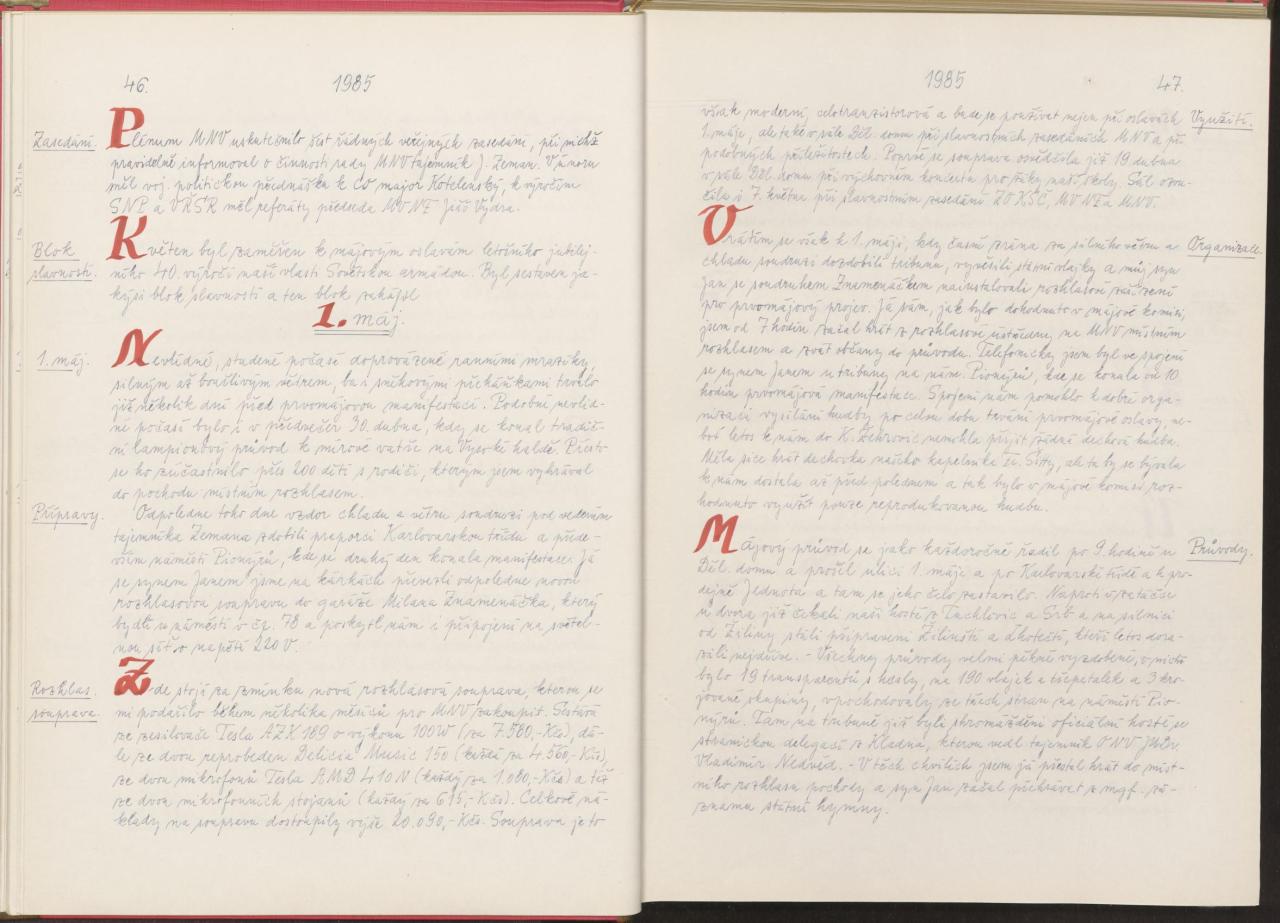 46.
1985
Zasedání.
Plénum MNV uskutečnilo šest řádných veřejných zasedání, při nichž
pravidelně informoval o činnosti rady MNV tajemník J. Zeman. V únoru
měl voj. politickou přednášku k CO major Kotelenský, k výročím
SNP a VŘSR měl referáty předseda MV NF Jiří Vydra.
Blok
slavností.
Květen byl zaměřen k májovým oslavám letošního jubilej-
ního 40. výročí naší vlasti Sovětskou armádou. Byl sestaven ja-
kýsi blok slavností a ten blok zahájil
1. máj.
1. máj.
Nevlídné, studené počasí doprovázené ranními mrazíky,
silným až bouřlivým větrem, ba i sněhovými přeháňkami trvalo
již několik dní před prvomájovou manifestací. Podobně nevlíd-
né počasí bylo i v předvečer 30. dubna, kdy se konal tradič-
ní lampionový průvod k mírové vatře na Vysoké haldě. Přesto
se ho zúčastnilo přes 200 dětí s rodiči, kterým jsem vyhrával
do pochodu místním rozhlasem.
Přípravy.
Odpoledne toho dne vzdor chladu a větru soudruzi pod vedením
tajemníka Zemana zdobili prapory Karlovarskou třídu a přede-
vším náměstí Pionýrů, kde se druhý den konala manifestace. Já
se synem Janem jsme na kárkách převezli odpoledne novou
rozhlasovou soupravu do garáže Milana Znamenáčka, který
bydlí u náměstí v čp. 78 a poskytl nám i připojení na světel-
nou síť o napětí 220 V.
Rozhlas.
souprava.
Zde stojí za zmínku nová rozhlasová souprava, kterou se
mi podařilo během několika měsíců pro MNV zakoupit. Sestává
ze zesilovače Tesla AZX 189 o výkonu 100W (za 7.560,-Kčs), dá-
le ze dvou reprobeden Delicia Music 150 (každá za 4.560,-Kčs),
ze dvou mikrofonů Tesla AMD 410 N (každý za 1.080,-Kčs) a též
ze dvou mikrofonních stojanů (každý za 615,-Kčs). Celkové ná-
klady na soupravu dostoupily výše 20.090,-Kčs. Souprava je to
1985
47.
však moderní, celotranzistorová a bude se používat nejen při oslavách
Využití.
1. máje, ale také v sále Děl. domu při slavnostních zasedáních MNV a při
podobných příležitostech. Poprvé se souprava osvědčila již 19. dubna
v sále Děl. domu při výchovném koncertu pro žáky naší školy. Sál ozvu-
čila i 7. května při slavnostním zasedání ZO KSČ, MV NF a MNV.
Organizace.
Vrátím se však k 1. máji, kdy časně zrána za silného větru a
chladu soudruzi dozdobili tribunu, vyvěsili státní vlajky a můj syn
Jan se soudruhem Znamenáčkem nainstalovali rozhlasové zařízení
pro prvomájový projev. Já sám, jak bylo dohodnuto v májové komisi,
jsem od 7 hodin začal hrát z rozhlasové ústředny na MNV místním
rozhlasem a zvát občany do průvodu. Telefonicky jsem byl ve spojení
se synem Janem u tribuny na nám. Pionýrů, kde se konala od 10
hodin prvomájová manifestace. Spojení nám pomohlo k dobré orga-
nizaci vysílání hudby po celou dobu trvání prvomájové oslavy, ne-
boť letos k nám do K. Žehrovic nemohla přijít žádná dechová hudba.
Měla sice hrát dechovka našeho kapelníka Fr. Šitty, ale ta by se bývala
k nám dostala až před polednem a tak bylo v májové komisi roz-
hodnuto využít pouze reprodukovanou hudbu.
Průvody.
Májový průvod se jako každoročně řadil po 9. hodině u
Děl. domu a prošel ulicí 1. máje a po Karlovarské třídě a k pro-
dejně Jednota a tam se jeho čelo zastavilo. Naproti v zatáčce
u dvora již čekali naši hosté z Tuchlovic a Srb a na silnici
od Žiliny stáli připraveni Žilinští a Lhotečtí, kteří letos dora-
zili nejdříve. - Všechny průvody velmi pěkně vyzdobené, v nichž
bylo 19 transparentů s hesly, na 190 vlajek a třepetalek a 3 kro-
jované skupiny, vpochodovaly ze třech stran na náměstí Pio-
nýrů. Tam na tribuně již byli shromážděni oficiální hosté se
stranickou delegací z Kladna, kterou vedl tajemník ONV JUDr.
Vladimír Nedvěd. - V těch chvílích jsem já přestal hrát do míst-
ního rozhlasu pochody a syn Jan začal přehrávat z mgf. zá-
znamu státní hymny.